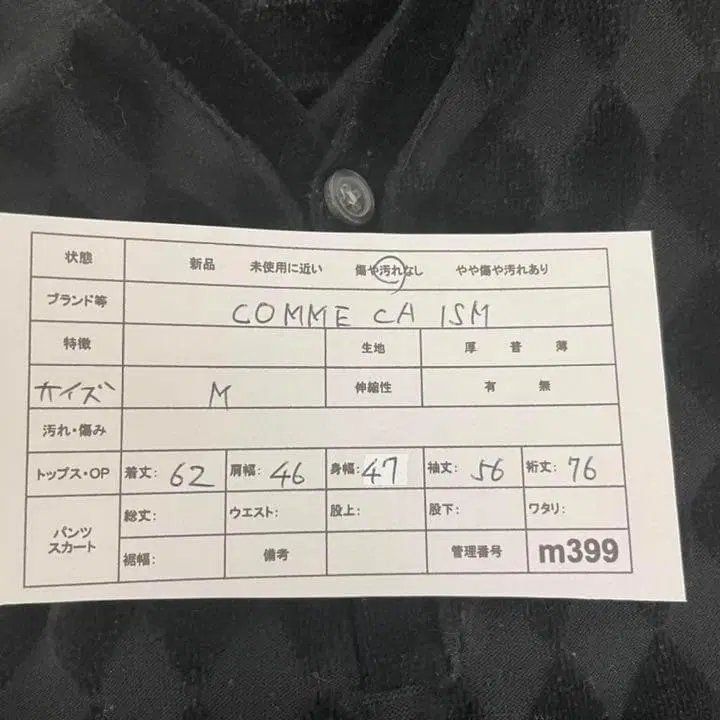 状態 新品 未使用に近い 傷や汚れなし やや傷や汚れあり
ブランド等 COMME CA ISM
特徴 生地 厚 普 薄
サイズ M 伸縮性 有 無
汚れ・傷み
トップス・OP 着丈: 62 肩幅: 46 身幅: 47 袖丈: 56 裄丈: 76
パンツ スカート 総丈: ウエスト: 股上: 股下: ワタリ:
裾幅: 備考 管理番号 m399